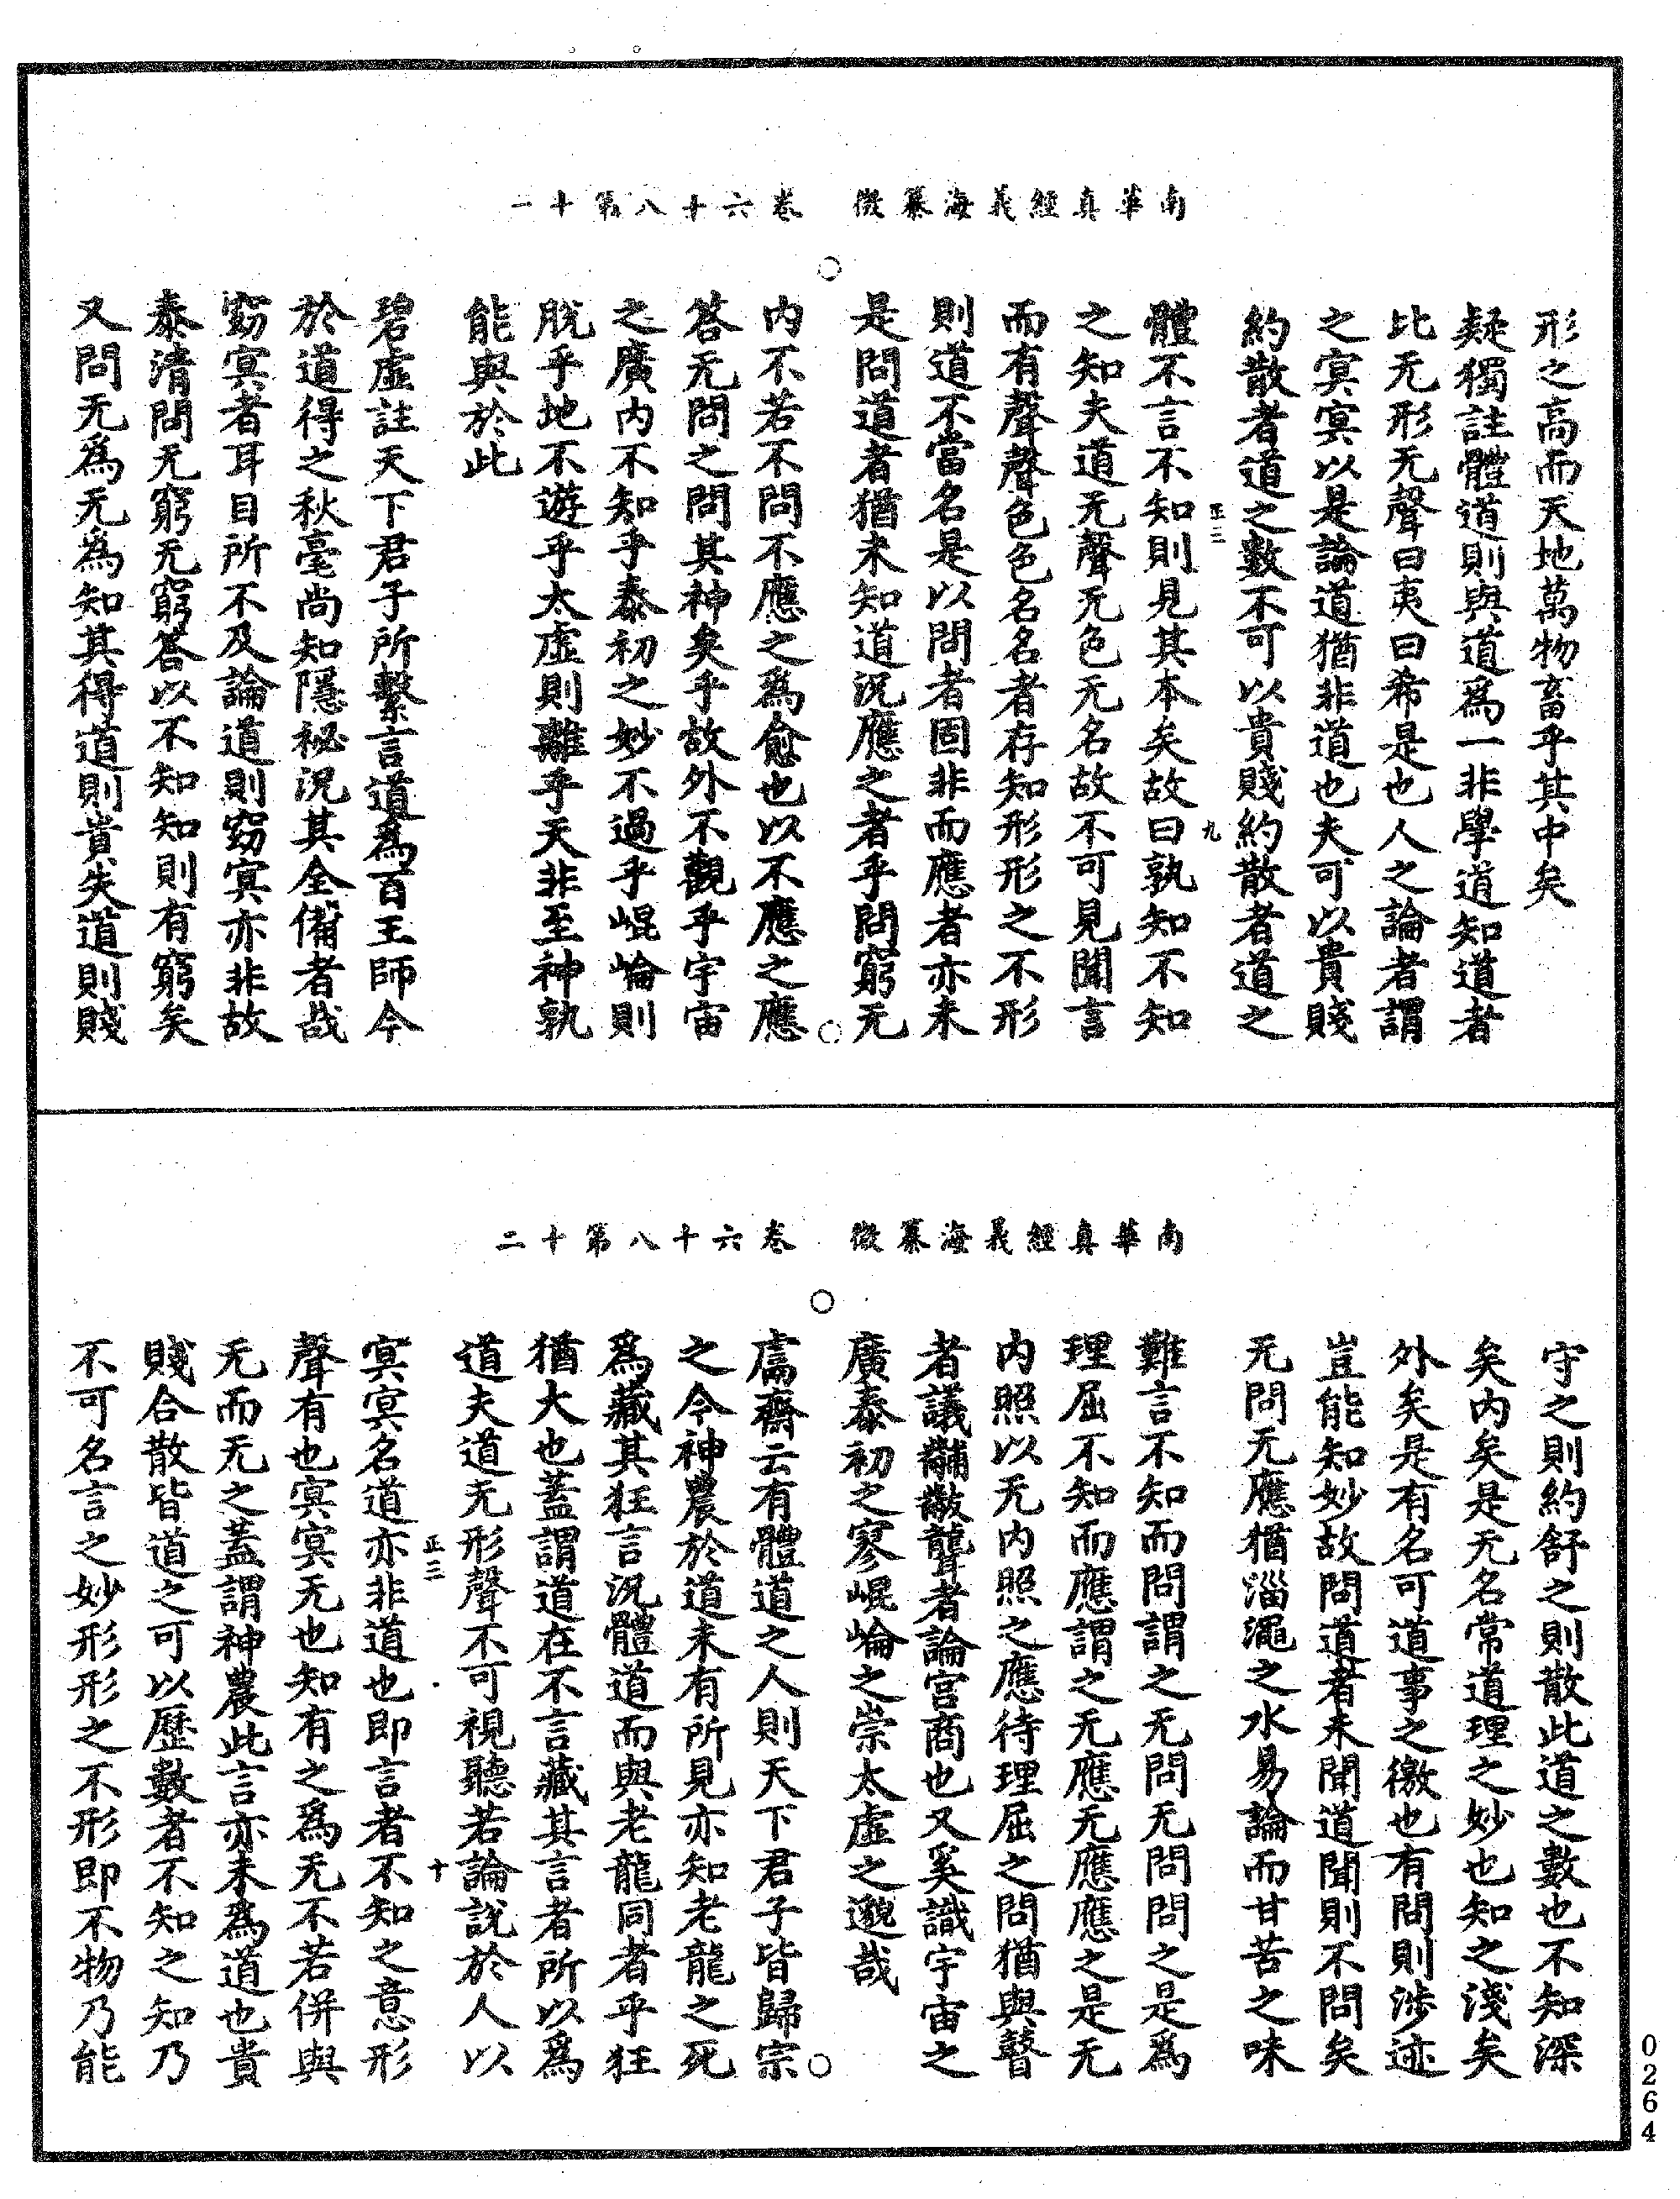 南華真經義海纂微　卷六十八第十一
形之高而天地萬物畜乎其中矣
疑獨註體道則與道為一非學道知道者
比无形无聲曰夷曰希是也人之論者謂
之冥冥以是論道猶非道也夫可以貴賤
約散者道之數不可以貴賤約散者道之
體不言不知則見其本矣故曰孰知不知
正三
九
之知夫道无聲无色无名故不可見聞言
而有聲聲色色名名者存知形形之不形
則道不當名是以問者固非而應者亦未
是問道者猶未知道況應之者乎問窮无
內不若不問不應之為愈也以不應之應
答无問之問其神矣乎故外不觀乎宇宙
之廣內不知乎泰初之妙不過乎崐崘則
脫乎地不遊乎太虛則離乎天非至神孰
能與於此
碧虛註天下君子所繫言道為百王師今
於道得之秋毫尚知隱祕況其全備者哉
窈冥者耳目所不及論道則窈冥亦非故
泰清問无窮无窮答以不知知則有窮矣
又問无為无為知其得道則貴失道則賤
南華真經義海纂微　卷六十八第十二
守之則約舒之則散此道之數也不知深
矣內矣是无名常道理之妙也知之淺矣
外矣是有名可道事之徼也有問則涉迹
豈能知妙故問道者未聞道聞則不問矣
无問无應猶淄澠之水易論而甘苦之味
難言不知而問謂之无問无問問之是為
理屈不知而應謂之无應无應應之是无
內照以无內照之應待理屈之問猶與瞽
者議黼黻聾者論宮商也又奚識宇宙之
廣泰初之寥崐崘之崇太虛之邈哉
鬳齋云有體道之人則天下君子皆歸宗
之今神農於道未有所見亦知老龍之死
為藏其狂言況體道而與老龍同者乎狂
猶大也蓋謂道在不言藏其言者所以為
道夫道无形聲不可視聽若論說於人以
正三
十
冥冥名道亦非道也即言者不知之意形
聲有也冥冥无也知有之為无不若併與
无而无之蓋謂神農此言亦未為道也貴
賤合散皆道之可以歷數者不知之知乃
不可名言之妙形形之不形即不物乃能
0264